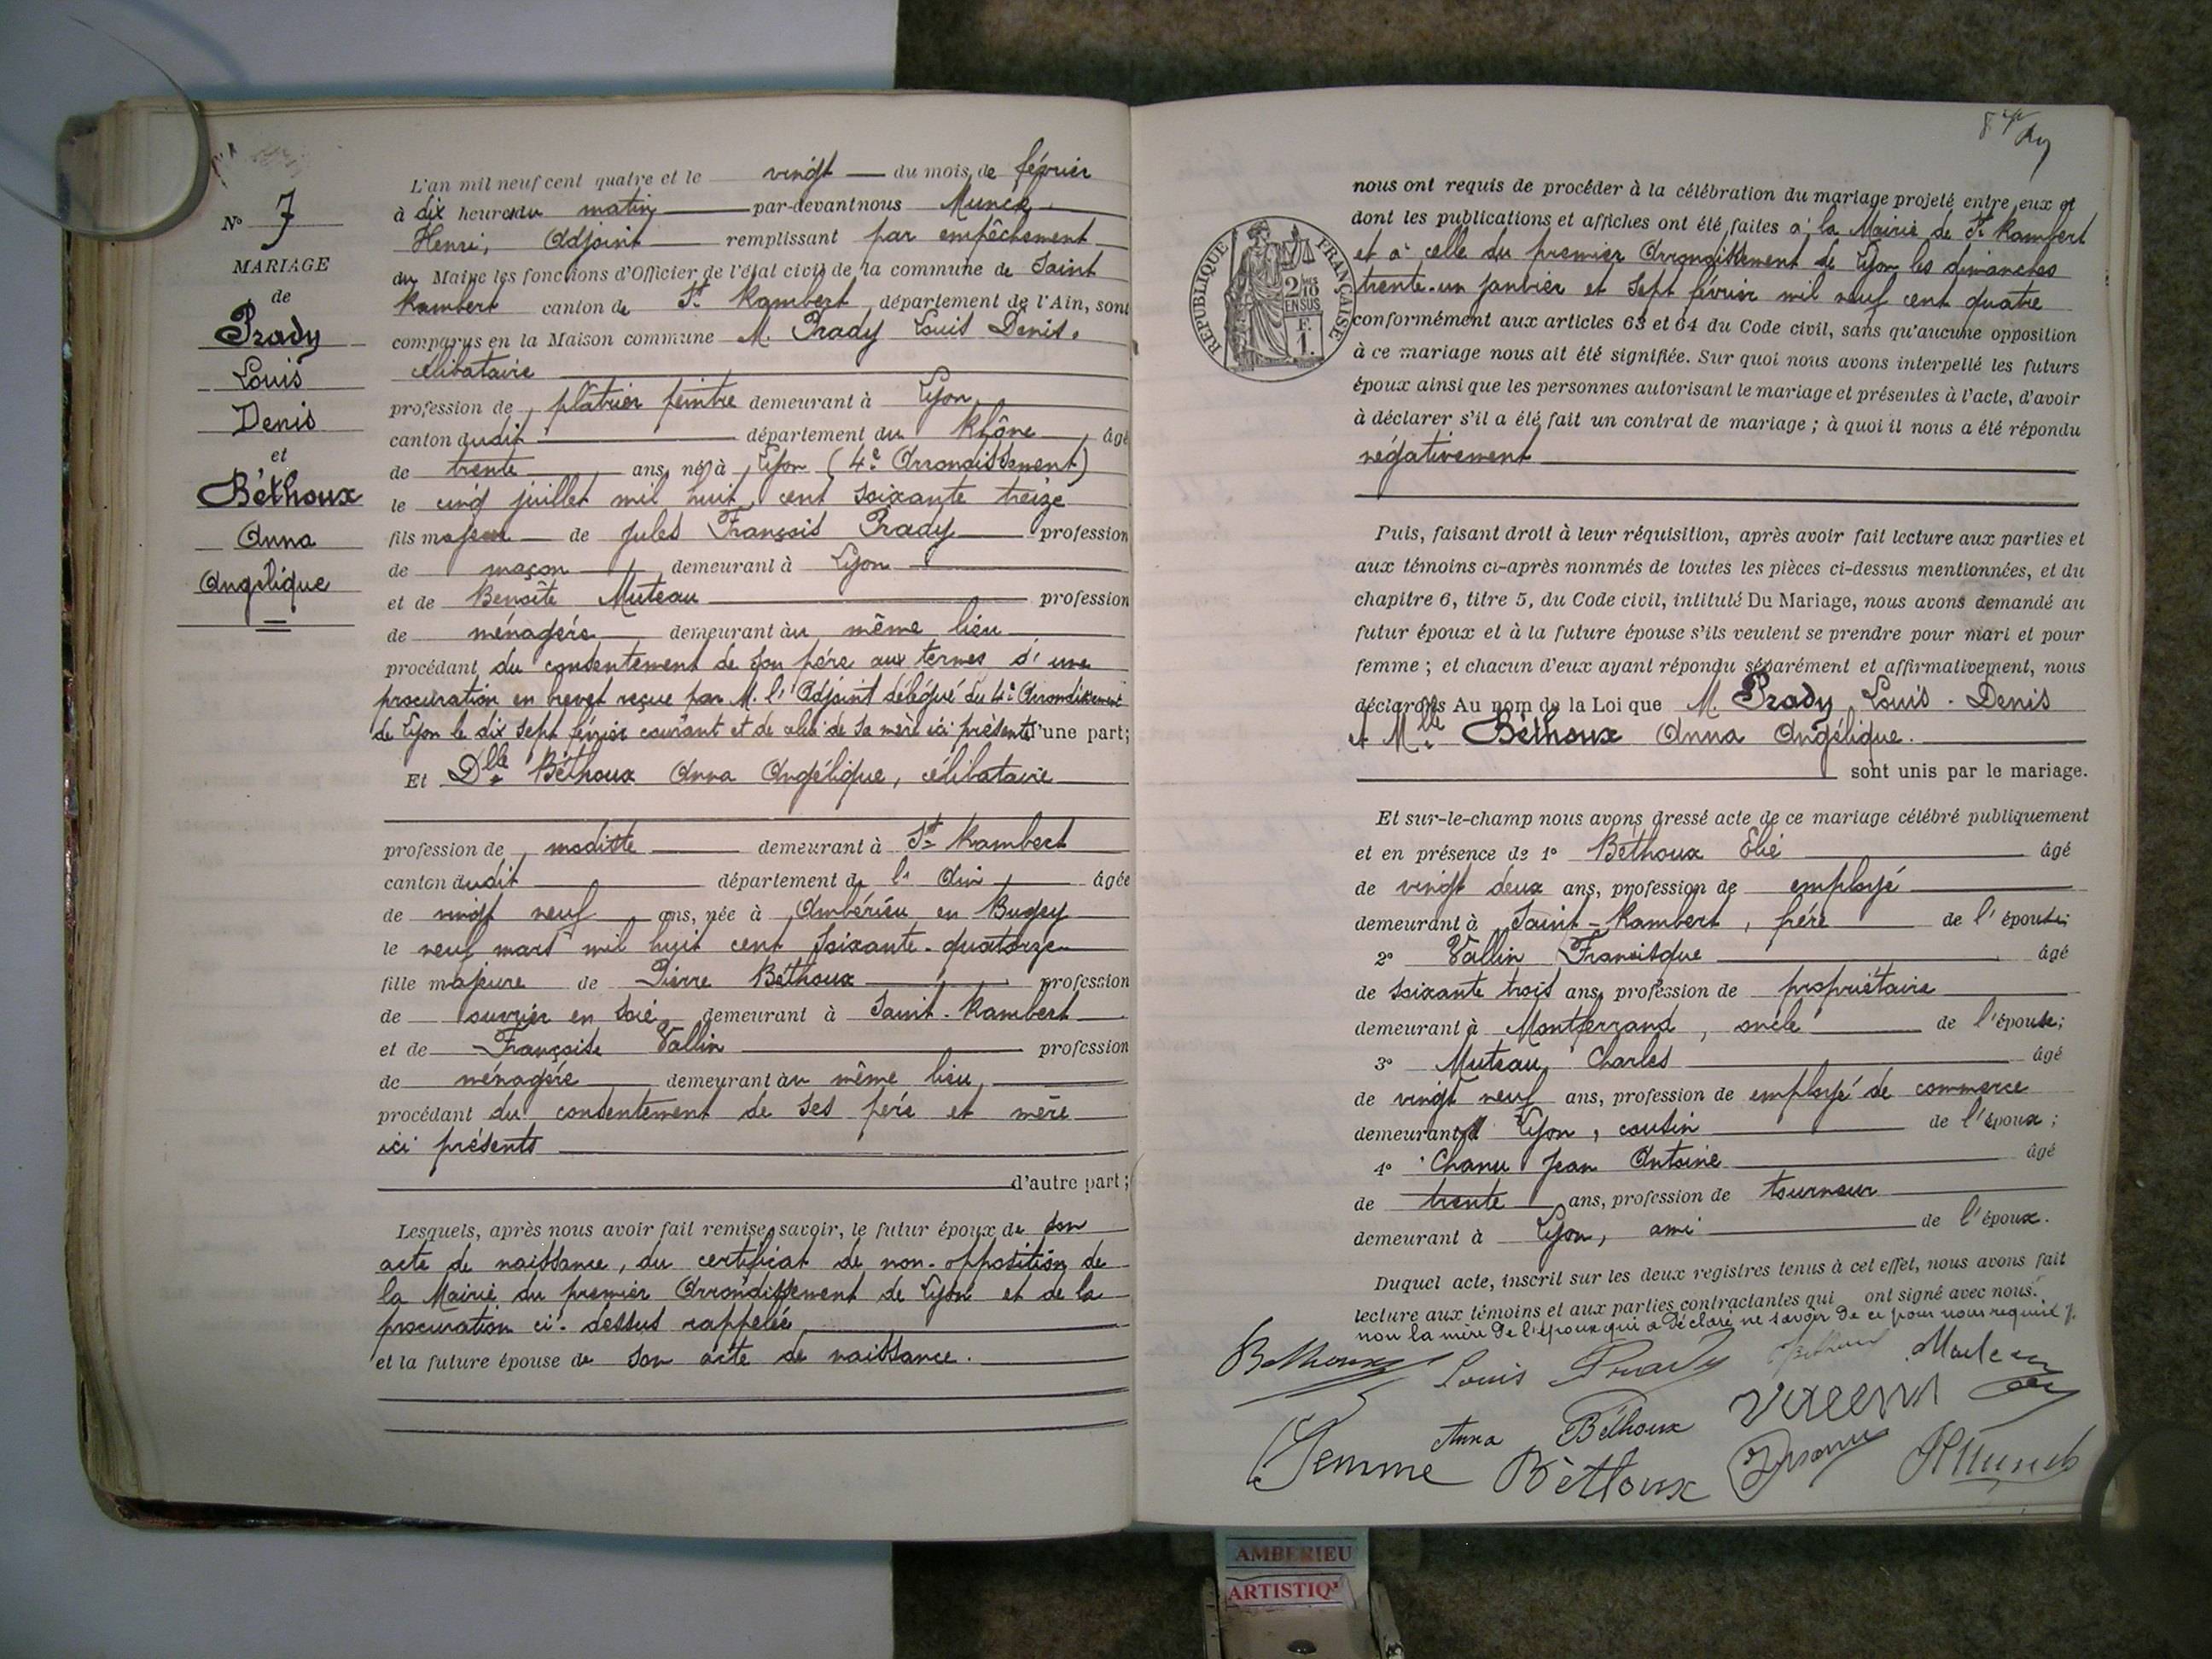 N° 7
MARIAGE
de
Prady
Louis
Denis
et
Béthoux
Anna
Angélique
L'an mil neuf cent quatre et le vingt du mois de février
à dix heures du matin par-devant nous Munck
Henri, Adjoint remplissant par empêchement
du Maire les fonctions d'Officier de l'état civil de la commune de Saint
Rambert canton de St Rambert, département de l'Ain, sont
comparus en la Maison commune M. Prady Louis Denis,
célibataire
profession de plâtrier peintre demeurant à Lyon,
canton dudit département du Rhône, âgé
de trente ans, né à Lyon (4e Arrondissement)
le cinq juillet mil huit cent soixante treize
fils majeur de Jules François Prady profession
de maçon demeurant à Lyon
et de Benoîte Muteau profession
de ménagère demeurant au même lieu
procédant du consentement de son père aux termes d'une
procuration en brevet reçue par M. l'Adjoint délégué du 4e Arrondissement
de Lyon le dix sept février courant et de celui de sa mère ici présente d'une part;
Et Dlle Béthoux Anna Angélique, célibataire
profession de modiste demeurant à St Rambert
canton dudit département de l'Ain, âgée
de vingt neuf ans, née à Ambérieu en Bugey
le neuf mars mil huit cent soixante-quatorze
fille majeure de Pierre Béthoux profession
de ouvrier en soie demeurant à Saint-Rambert
et de Françoise Vallin profession
de ménagère demeurant au même lieu,
procédant du consentement de ses père et mère
ici présents
d'autre part;
Lesquels, après nous avoir fait remise, savoir, le futur époux de son
acte de naissance, du certificat de non-opposition de
la Mairie du premier Arrondissement de Lyon et de la
procuration ci-dessus rappelée
et la future épouse de son acte de naissance.
RÉPUBLIQUE FRANÇAISE
2/10
EN SUS
F.
1.
nous ont requis de procéder à la célébration du mariage projeté entre eux et
dont les publications et affiches ont été faites à la Mairie de St Rambert
et à celle du premier Arrondissement de Lyon les dimanches
trente-un janvier et sept février mil neuf cent quatre
conformément aux articles 63 et 64 du Code civil, sans qu'aucune opposition
à ce mariage nous ait été signifiée. Sur quoi nous avons interpellé les futurs
époux ainsi que les personnes autorisant le mariage et présentes à l'acte, d'avoir
à déclarer s'il a été fait un contrat de mariage; à quoi il nous a été répondu
négativement
Puis, faisant droit à leur réquisition, après avoir fait lecture aux parties et
aux témoins ci-après nommés de toutes les pièces ci-dessus mentionnées, et du
chapitre 6, titre 5, du Code civil, intitulé Du Mariage, nous avons demandé au
futur époux et à la future épouse s'ils veulent se prendre pour mari et pour
femme; et chacun d'eux ayant répondu séparément et affirmativement, nous
déclarons Au nom de la Loi que M. Prady Louis-Denis
et Mlle Béthoux Anna Angélique.
sont unis par le mariage.
Et sur-le-champ nous avons dressé acte de ce mariage célébré publiquement
et en présence de 1° Béthoux Elie âgé
de vingt deux ans, profession de employé
demeurant à Saint-Rambert, frère de l'épouse;
2° Vallin Francisque âgé
de soixante trois ans, profession de propriétaire
demeurant à Montferrand, oncle de l'épouse;
3° Muteau Charles âgé
de vingt neuf ans, profession de employé de commerce
demeurant à Lyon, cousin de l'époux;
4° Chanu Jean Antoine âgé
de trente ans, profession de tourneur
demeurant à Lyon, ami de l'époux.
Duquel acte, inscrit sur les deux registres tenus à cet effet, nous avons fait
lecture aux témoins et aux parties contractantes qui ont signé avec nous.
non la mère de l'époux qui a déclaré ne savoir de ce par nous requise
Béthoux Louis Prady Béthoux Muteau
Anna Béthoux
Femme Béthoux Chanu HMunck
AMBERIEU
ARTISTIQ'